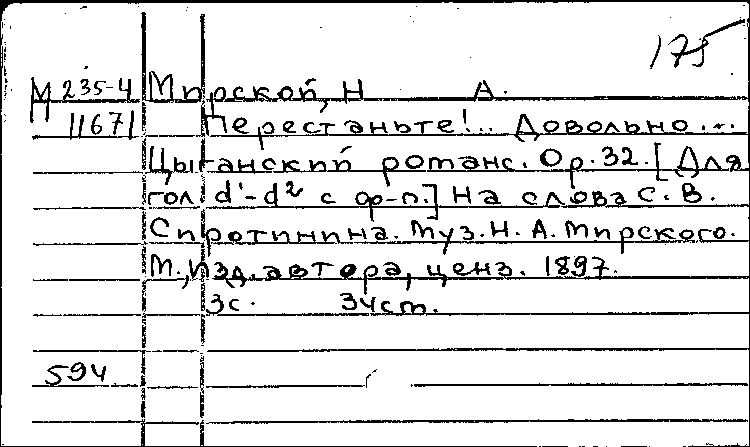 175
М 235-4 Мирской, Н А.
П 11671 Перестаньте!.. Довольно...
Цыганский романс. Op. 32. [Для
гол. d¹-d² с ф-п.] На слова С. В.
Сиротинина. Муз. Н. А. Мирского.
М., изд. автора, ценз. 1897.
3с. 34см.
594